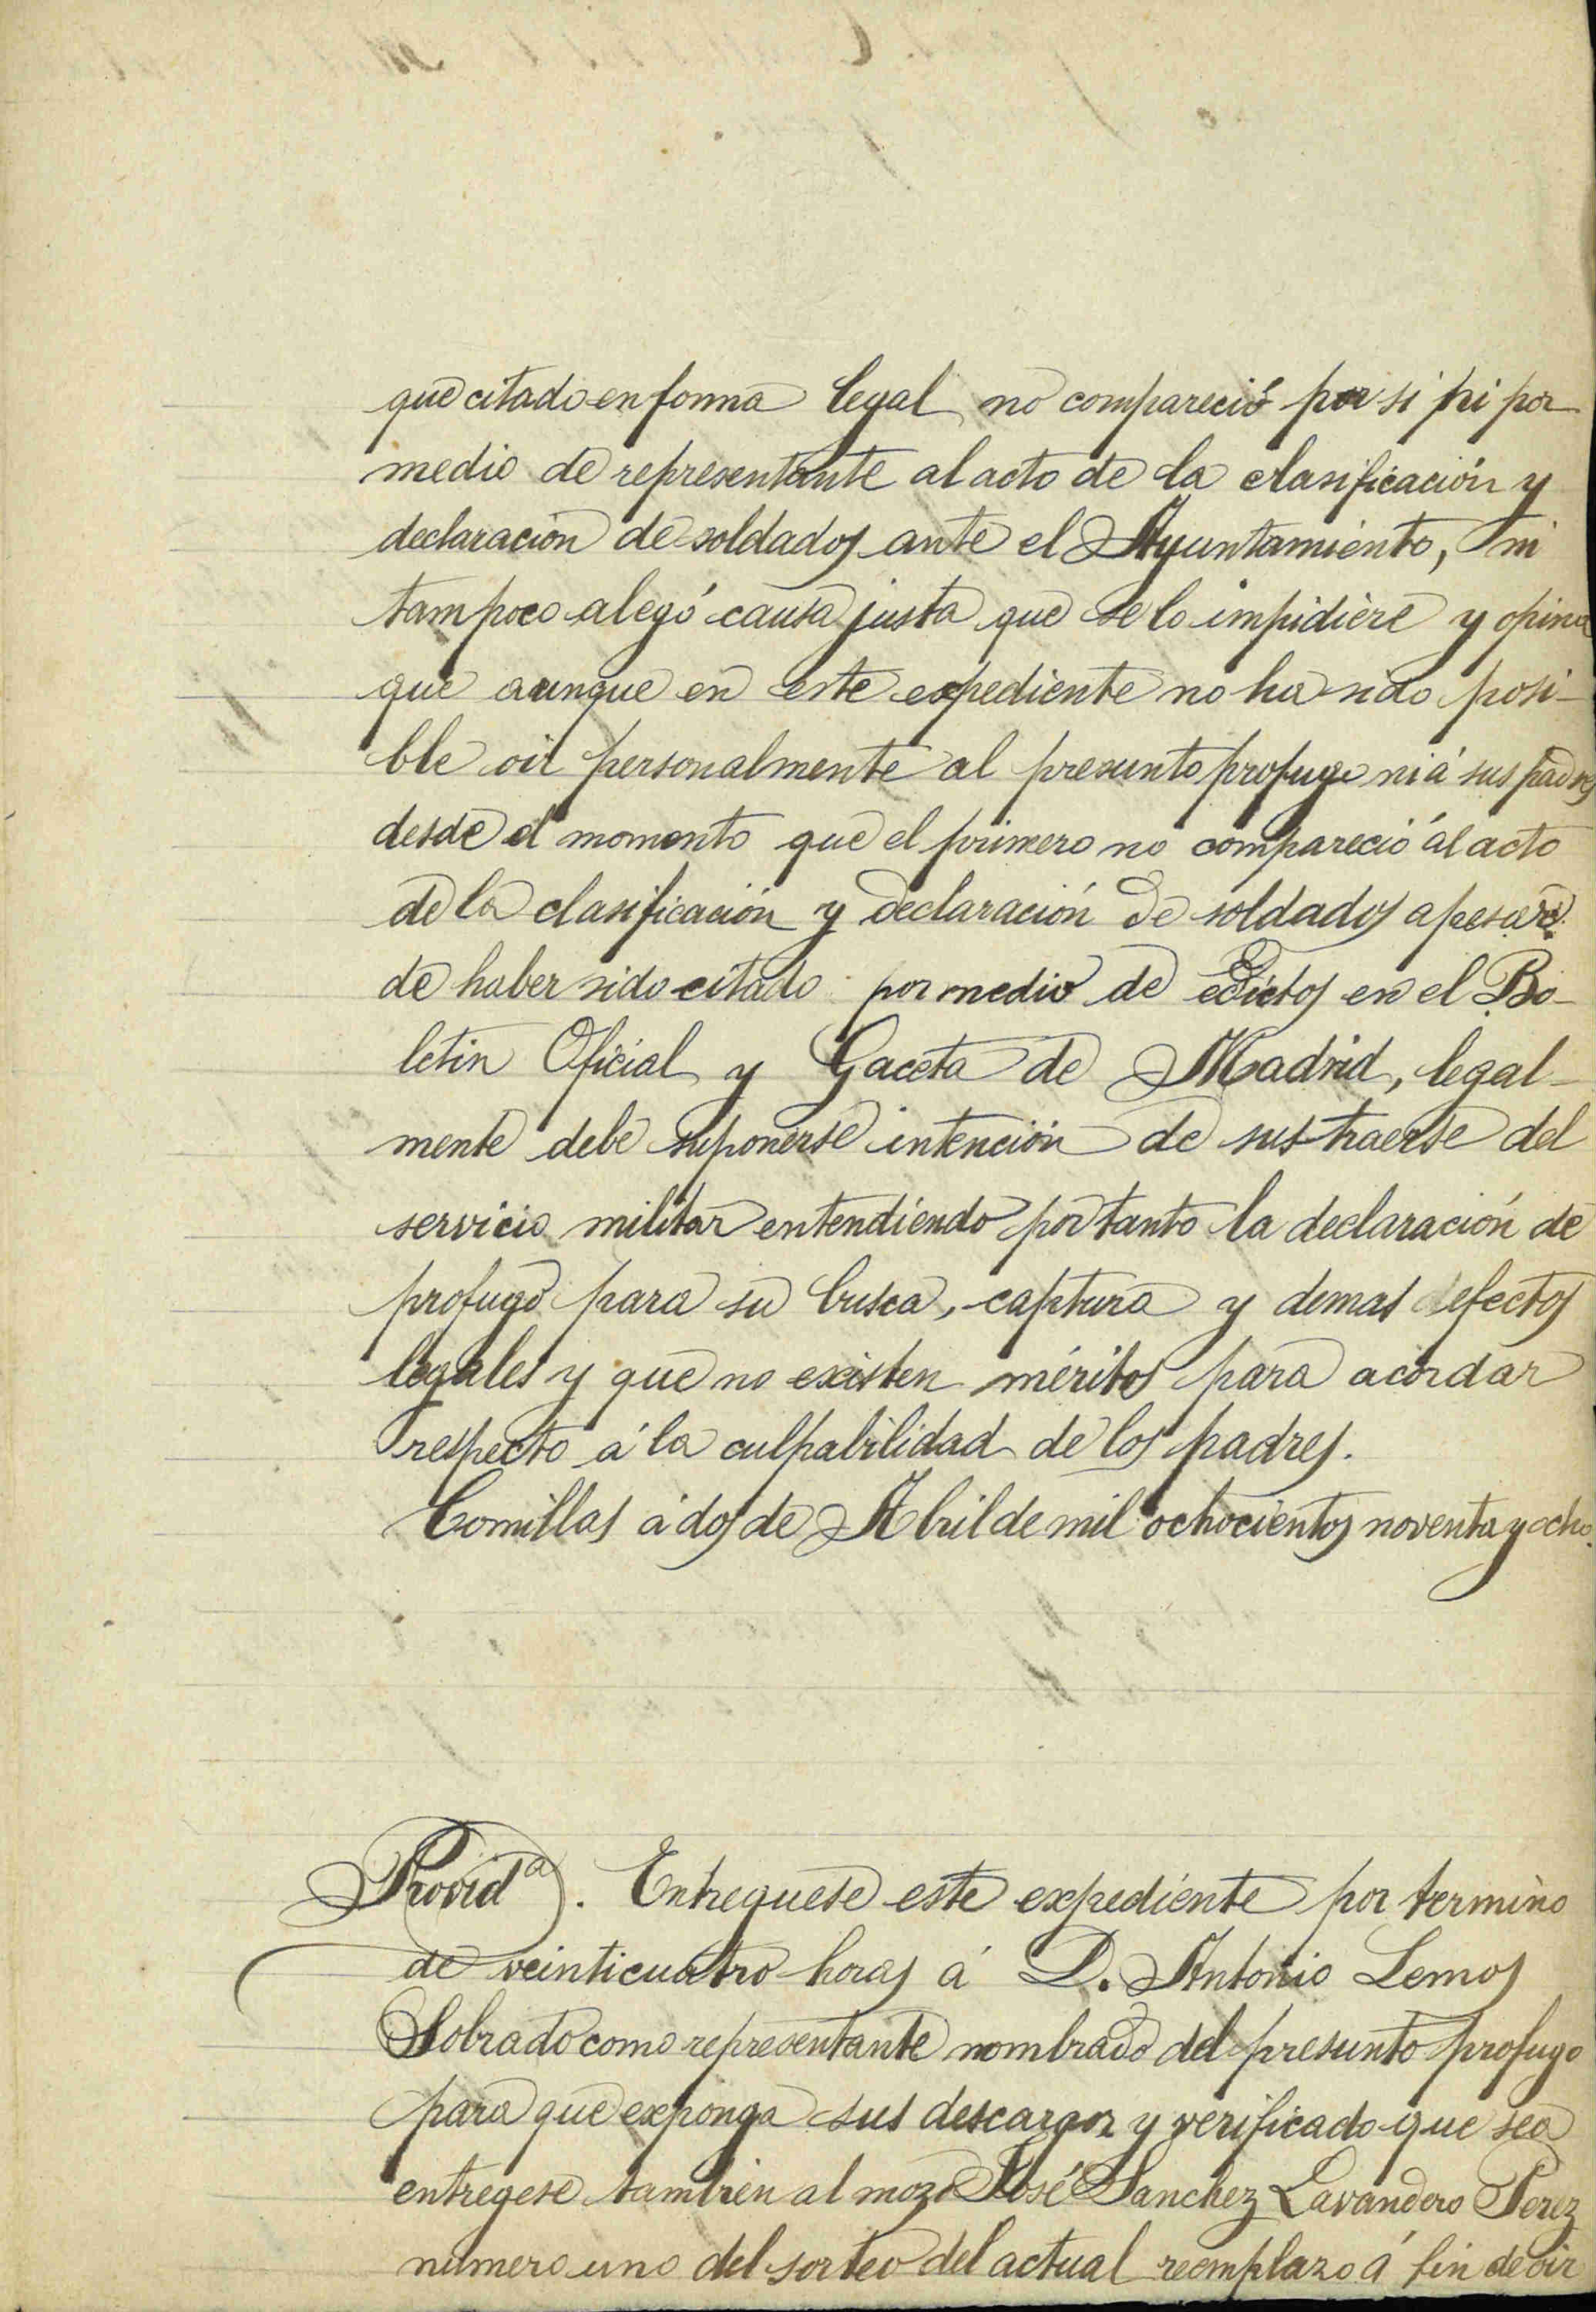 que citado en forma legal no compareció por si ni por
medio de representante al acto de la clasificación y
declaración de soldados ante el Ayuntamiento, ni
tampoco alegó causa justa que se lo impidiere y opina
que aunque en este expediente no ha sido posi-
ble oir personalmente al presunto profugo ni á sus padres
desde el momento que el primero no compareció al acto
de la clasificación y declaración de soldados apesar
de haber sido citado por medio de edictos en el Bo-
letin Oficial y Gaceta de Madrid, legal-
mente debe suponerse intención de sustraerse del
servicio militar entendiendo por tanto la declaración de
profugo para su busca, captura y demas efectos
legales y que no existen méritos para acordar
respecto á la culpabilidad de los padres.
Comillas á dos de Abril de mil ochocientos noventa y ocho.
Provid.ª Entreguese este expediente por termino
de veinticuatro horas á D. Antonio Lemos
Sobrado como representante nombrado del presunto profugo
para que exponga sus descargos y verificado que sea
entregese tambien al mozo José Sanchez Lavandero Perez
numero uno del sorteo del actual reemplazo á fin de oir